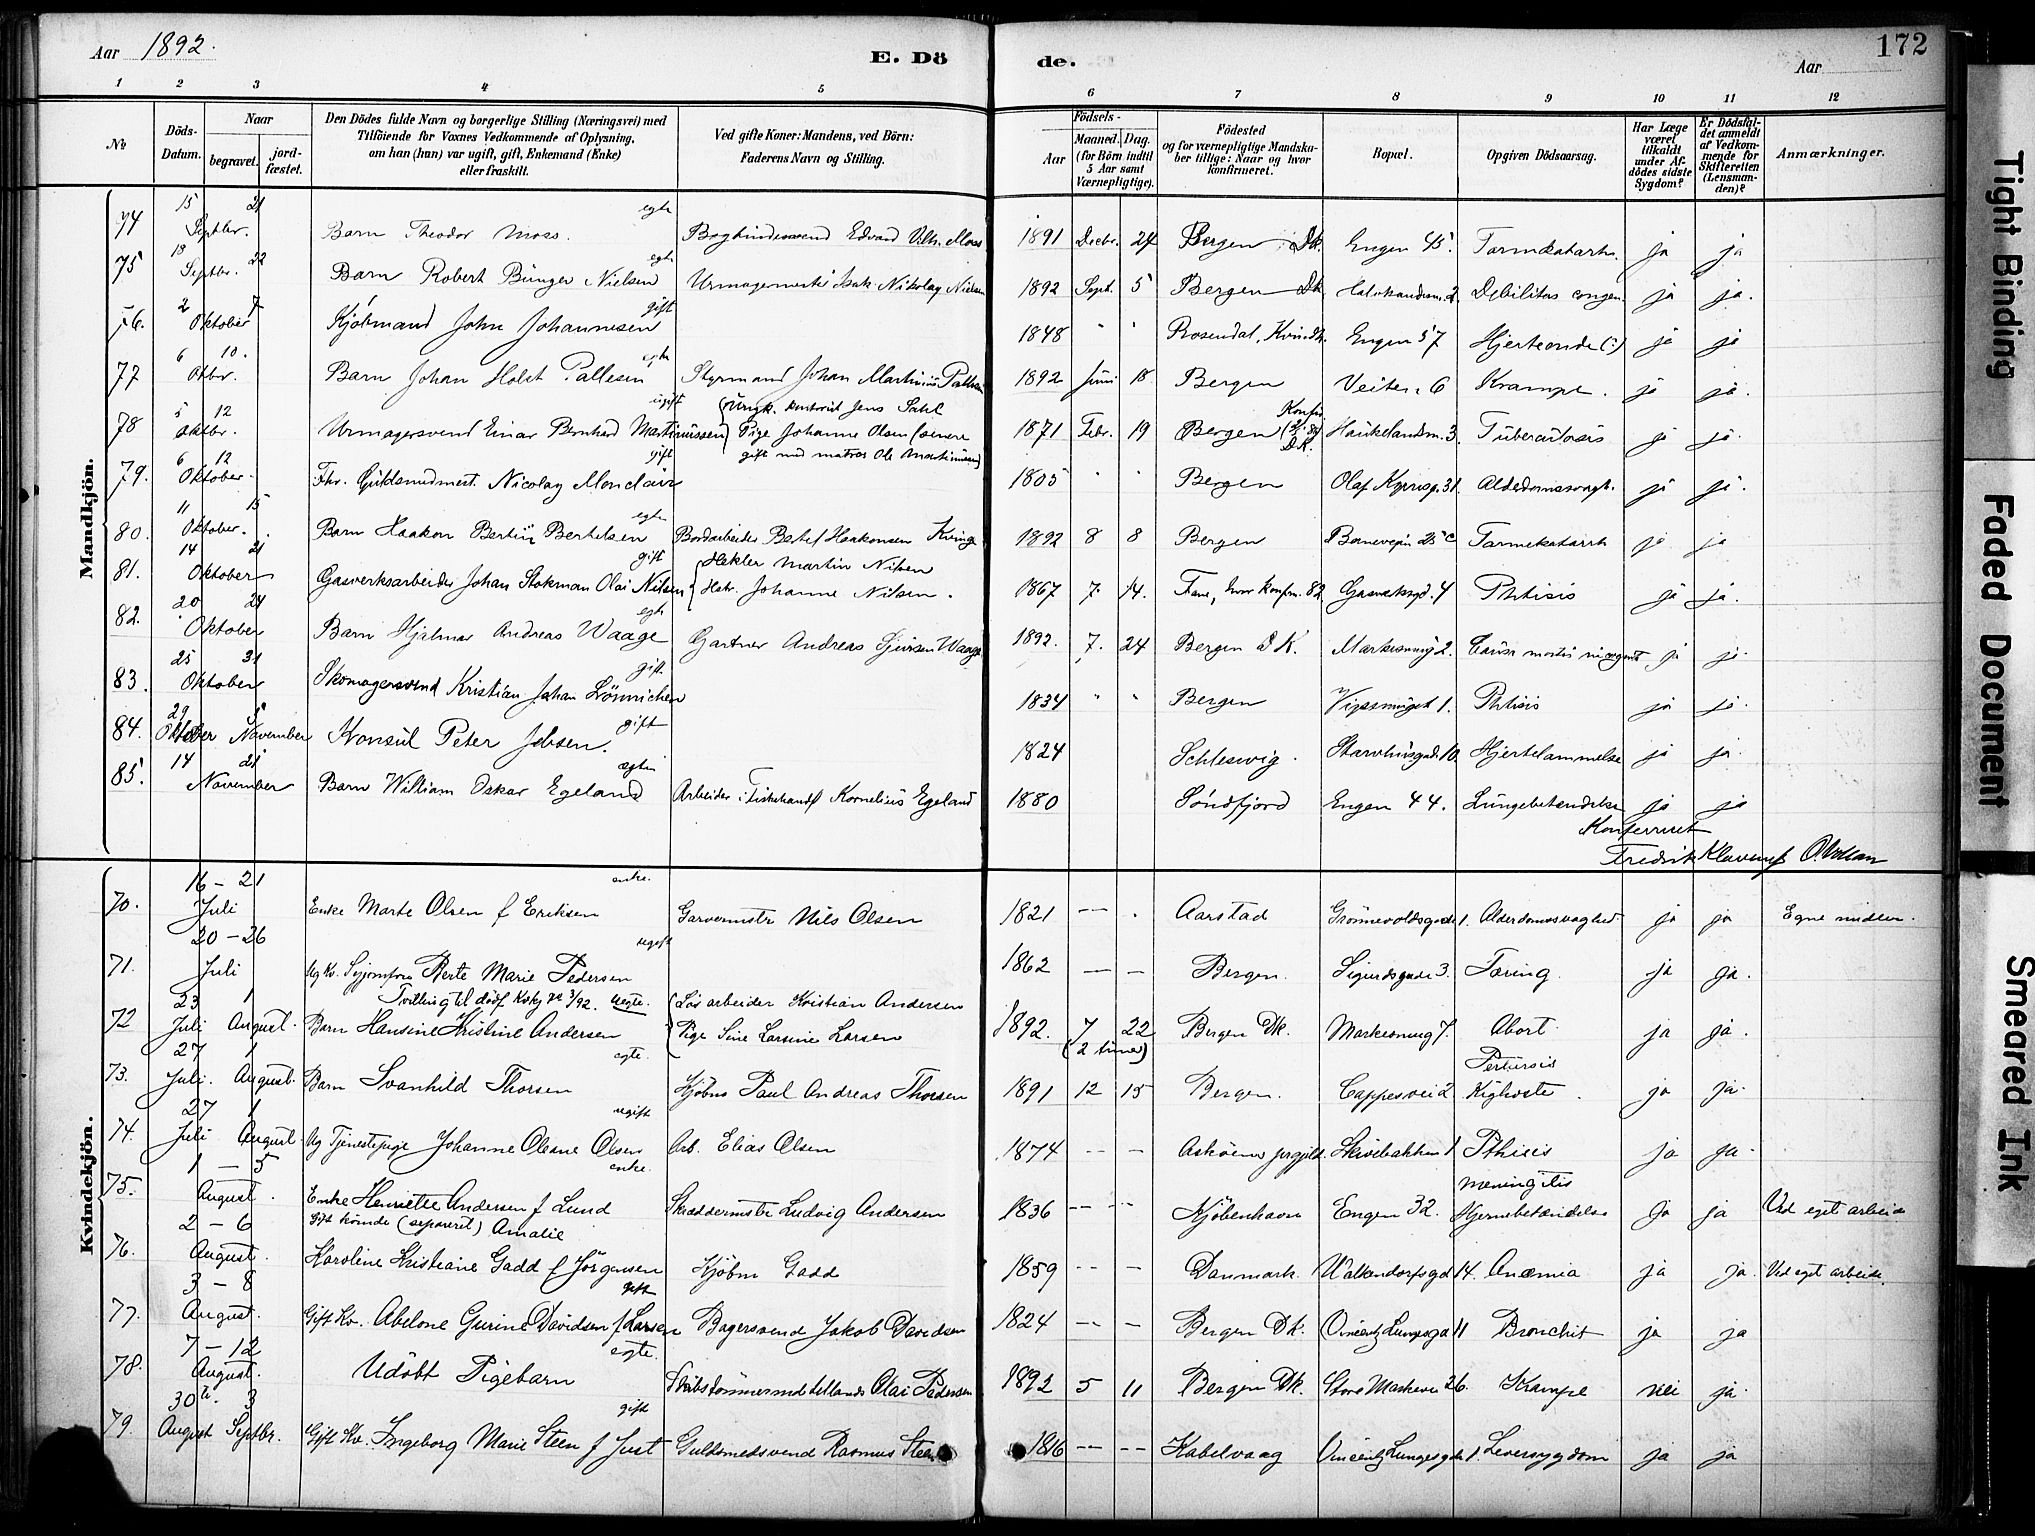 Aar 1892.
E. Dö de.
Aar
172
1 2 3 4 5 6 7 8 9 10 11 12
No
Döds-Datum.
Naar
begravet.
jord-fæstet.
Den Dödes fulde Navn og borgerlige Stilling (Næringsvei) med
Tilföiende for Voxnes Vedkommende af Oplysning,
om han (hun) var ugift, gift, Enkemand (Enke)
eller fraskilt.
Ved gifte Koner: Mandens, ved Börn:
Faderens Navn og Stilling.
Födsels-
Aar
Maaned. Dag.
(for Börn indtil
5 Aar samt
Værnepligtige).
Födested
og for værnepligtige Mandska-
ber tillige: Naar og hvor
konfirmeret.
Bopæl.
Opgiven Dödsaarsag.
Har Læge
været
tilkaldt
under Af-
dödes sidste
Sygdom?
Er Dödsfal-
det anmeldt
af Vedkom-
mende for
Skifteretten
(Lensman-
den)?
Anmærkninger.
Mandkjön.
74 15 21 Septbr. Barn Theodor Moss. egte Bogbindersvend Edvard Vilh. Moss 1891 Decbr. 24 Bergen Dk. Engen 45. Tarmkatarrh. ja ja
75 19 22 Septbr. Barn Robert Bünger Nielsen egte Urmagermester Isak Nikolay Nielsen 1892 Sept. 5 Bergen Dk. 2. Debilitas congen. ja ja.
76. 2 7 Oktober Kjøbmand John Johannesen gift 1848 " " Rosendal, Kvindh. Engen 57 Hjerteonde (?) ja ja
77 6 10. Otbr. Barn Johan Holst Pallesen egte Styrmand Johan Martinius Pallesen 1892 Juni 18 Bergen Veiten 6 Krampe. ja ja.
78 5 12 oktbr. Urmagersvend Einar Bernhard Martinussen ugift (Ungk. kontorist Jens Dahl Pige Johanne Olsen (senere gift med matros Ole Martinussen) 1871 Febr. 19 Bergen (Konfir. D.K. Haukelandsm. 3. Tuberculosis ja ja.
79. 6 12 Oktober. Fhv. Guldsmedmest. Nicolay Monclair gift 1805 " " Bergen Olaf Kyrresg. 31. Alderdomssvagh. ja ja.
80. 11 15 Oktober. Barn Haakon Bertin Bertelsen egte Bordarbeider Bertel Haakonsen Kvinge 1892 8 8 Bergen Banevejen 25 c Tarmekatarrh ja ja
81. 14 21 Oktober Gasverksarbeider Johan Stokman Olai Nilsen gift (Hekler Martin Nilsen Hstr. Johanne Nilsen. 1867 7. 14. Fane, hvor konfirm. 82 Gasverksgd. 4 Phtisis ja ja.
82. 20 24 Oktober Barn Hjalmar Andreas Waage egte Gartner Andreas Sjursen Waage 1892. 7. 24 Bergen D K. Markesmug 2. Causa mortis ja ja.
83. 25 31 Oktober Skomagersvend Kristian Johan Lönnichen gift 1834 " " Bergen 1. Phtisis ja ja.
84. 29 5 Oktober November Konsul Peter Jebsen. gift 1824 Schlesvig. Starvhusgade 10. Hjertelammelse ja ja.
85. 14 21 November Barn William Oskar Egeland egte Arbeider i Fiskehandl Kornelius Egeland 1880 Söndfjord Engen 44. Lungebetændelse ja ja
Konfereret
Fredrik Klaveness O. Vollan
Kvindekjön.
70. 16 – 21 Juli Enke Marte Olsen f Eriksen enke. Garvermstr Nils Olsen 1821 — . Aarstad Grönnevoldsgade 1. Alderdomssvaghed ja ja Egne midler.
71. 20 – 26 Juli Ug Kv. Syjomfru Berte Marie Pedersen ugift 1862 — — Bergen. Sigurdsgade 3. Tæring. ja ja.
72 23 1 Juli August. Tvilling til dödf 3/92. uegte. Barn Hansine Kristine Andersen (Lös arbeider Kristian Andersen Pige Sine Larsine Larsen 1892. 7 22 (2 timer) Bergen Dk. Markesmug 7. Abort. ja ja.
73. 27 1 Juli. August. Barn Svanhild Thorsen egte. Kjøbm Paul Andreas Thorsen 1891 12 15 Bergen. Cappesvei 2 Pertussis Kighoste. ja ja.
74. 27 1 Juli August Ug Tjenestepige Johanne Olesne Olsen ugift Arb. Elias Olsen 1874 -- — Askøens prgjld. Skivebakken 1 Pthisis ja ja.
75. 1 – 5 August. Enke Henriette Andersen f Lund enke. Skræddermstr Ludvig Andersen 1836 -- -- Kjöbenhavn Engen 32. meningitis Hjernebetændelse ja ja Ved eget arbeide
76. 2 – 6 August. Gift kvinde (separeret) Amalie Karoline Kristiane Gadd f Jörgensen Kjöbm Gadd 1859 -- — Danmark. Walkendorfsgd 14. Anæmia ja ja. Ved eget arbeide.
77. 3 – 8 August. Gift Kv. Abelone Gurine Davidsen f Larsen gift Bagersvend Jakob Davidsen 1824 -- — Bergen Dk. Vincentz Lungesgd 11 Bronchit ja ja
78. 7 – 12 August. Udöbt Pigebarn egte. Skibstömmermd Olai Pedersen 1892 5 11 Bergen Dk. Store Markevei 26. Krampe nei ja.
79. 30te. 3 August Septbr. Gift Kv. Ingeborg Marie Steen f Just gift Guldsmedsvend Rasmus Steen 1816 -- -- Kabelvaag Vincentz Lungesgde 1. Leversygdom ja ja
Tight Binding
Faded Document
Smeared Ink